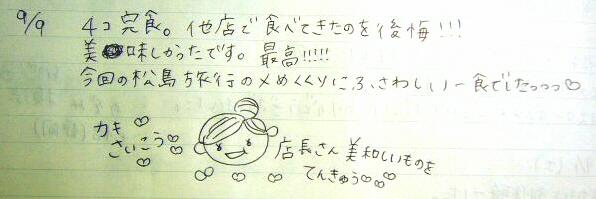 9/9 4コ完食。他店で食べてきたのを後悔!!!
美味しかったです。最高!!!!!
今回の松島旅行の〆めくくりにふさわしい一食でしたっっっ♡
カキ
さいこう♡
店長さん美味しいものを
てんきゅう♡♡